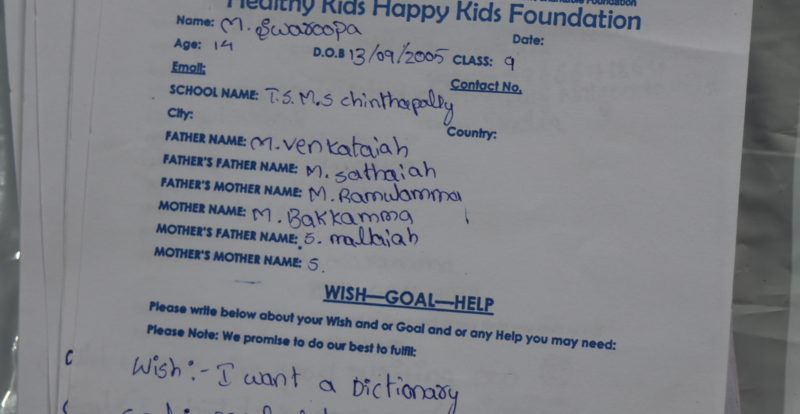 Healthy Kids Happy Kids Foundation
Name: M. Swaroopa Date:
Age: 14 D.O.B 13/09/2005 CLASS: 9
Email: Contact No.
SCHOOL NAME: T.S.M.S chinthapally
City: Country:
FATHER NAME: M. venkataiah
FATHER'S FATHER NAME: M. sathaiah
FATHER'S MOTHER NAME: M. Ramulamma
MOTHER NAME: M. Bakkamma
MOTHER'S FATHER NAME: S. mallaiah
MOTHER'S MOTHER NAME: S.
WISH—GOAL—HELP
Please write below about your Wish and or Goal and or any Help you may need:
Please Note: We promise to do our best to fulfil:
Wish:- I want a Dictionary